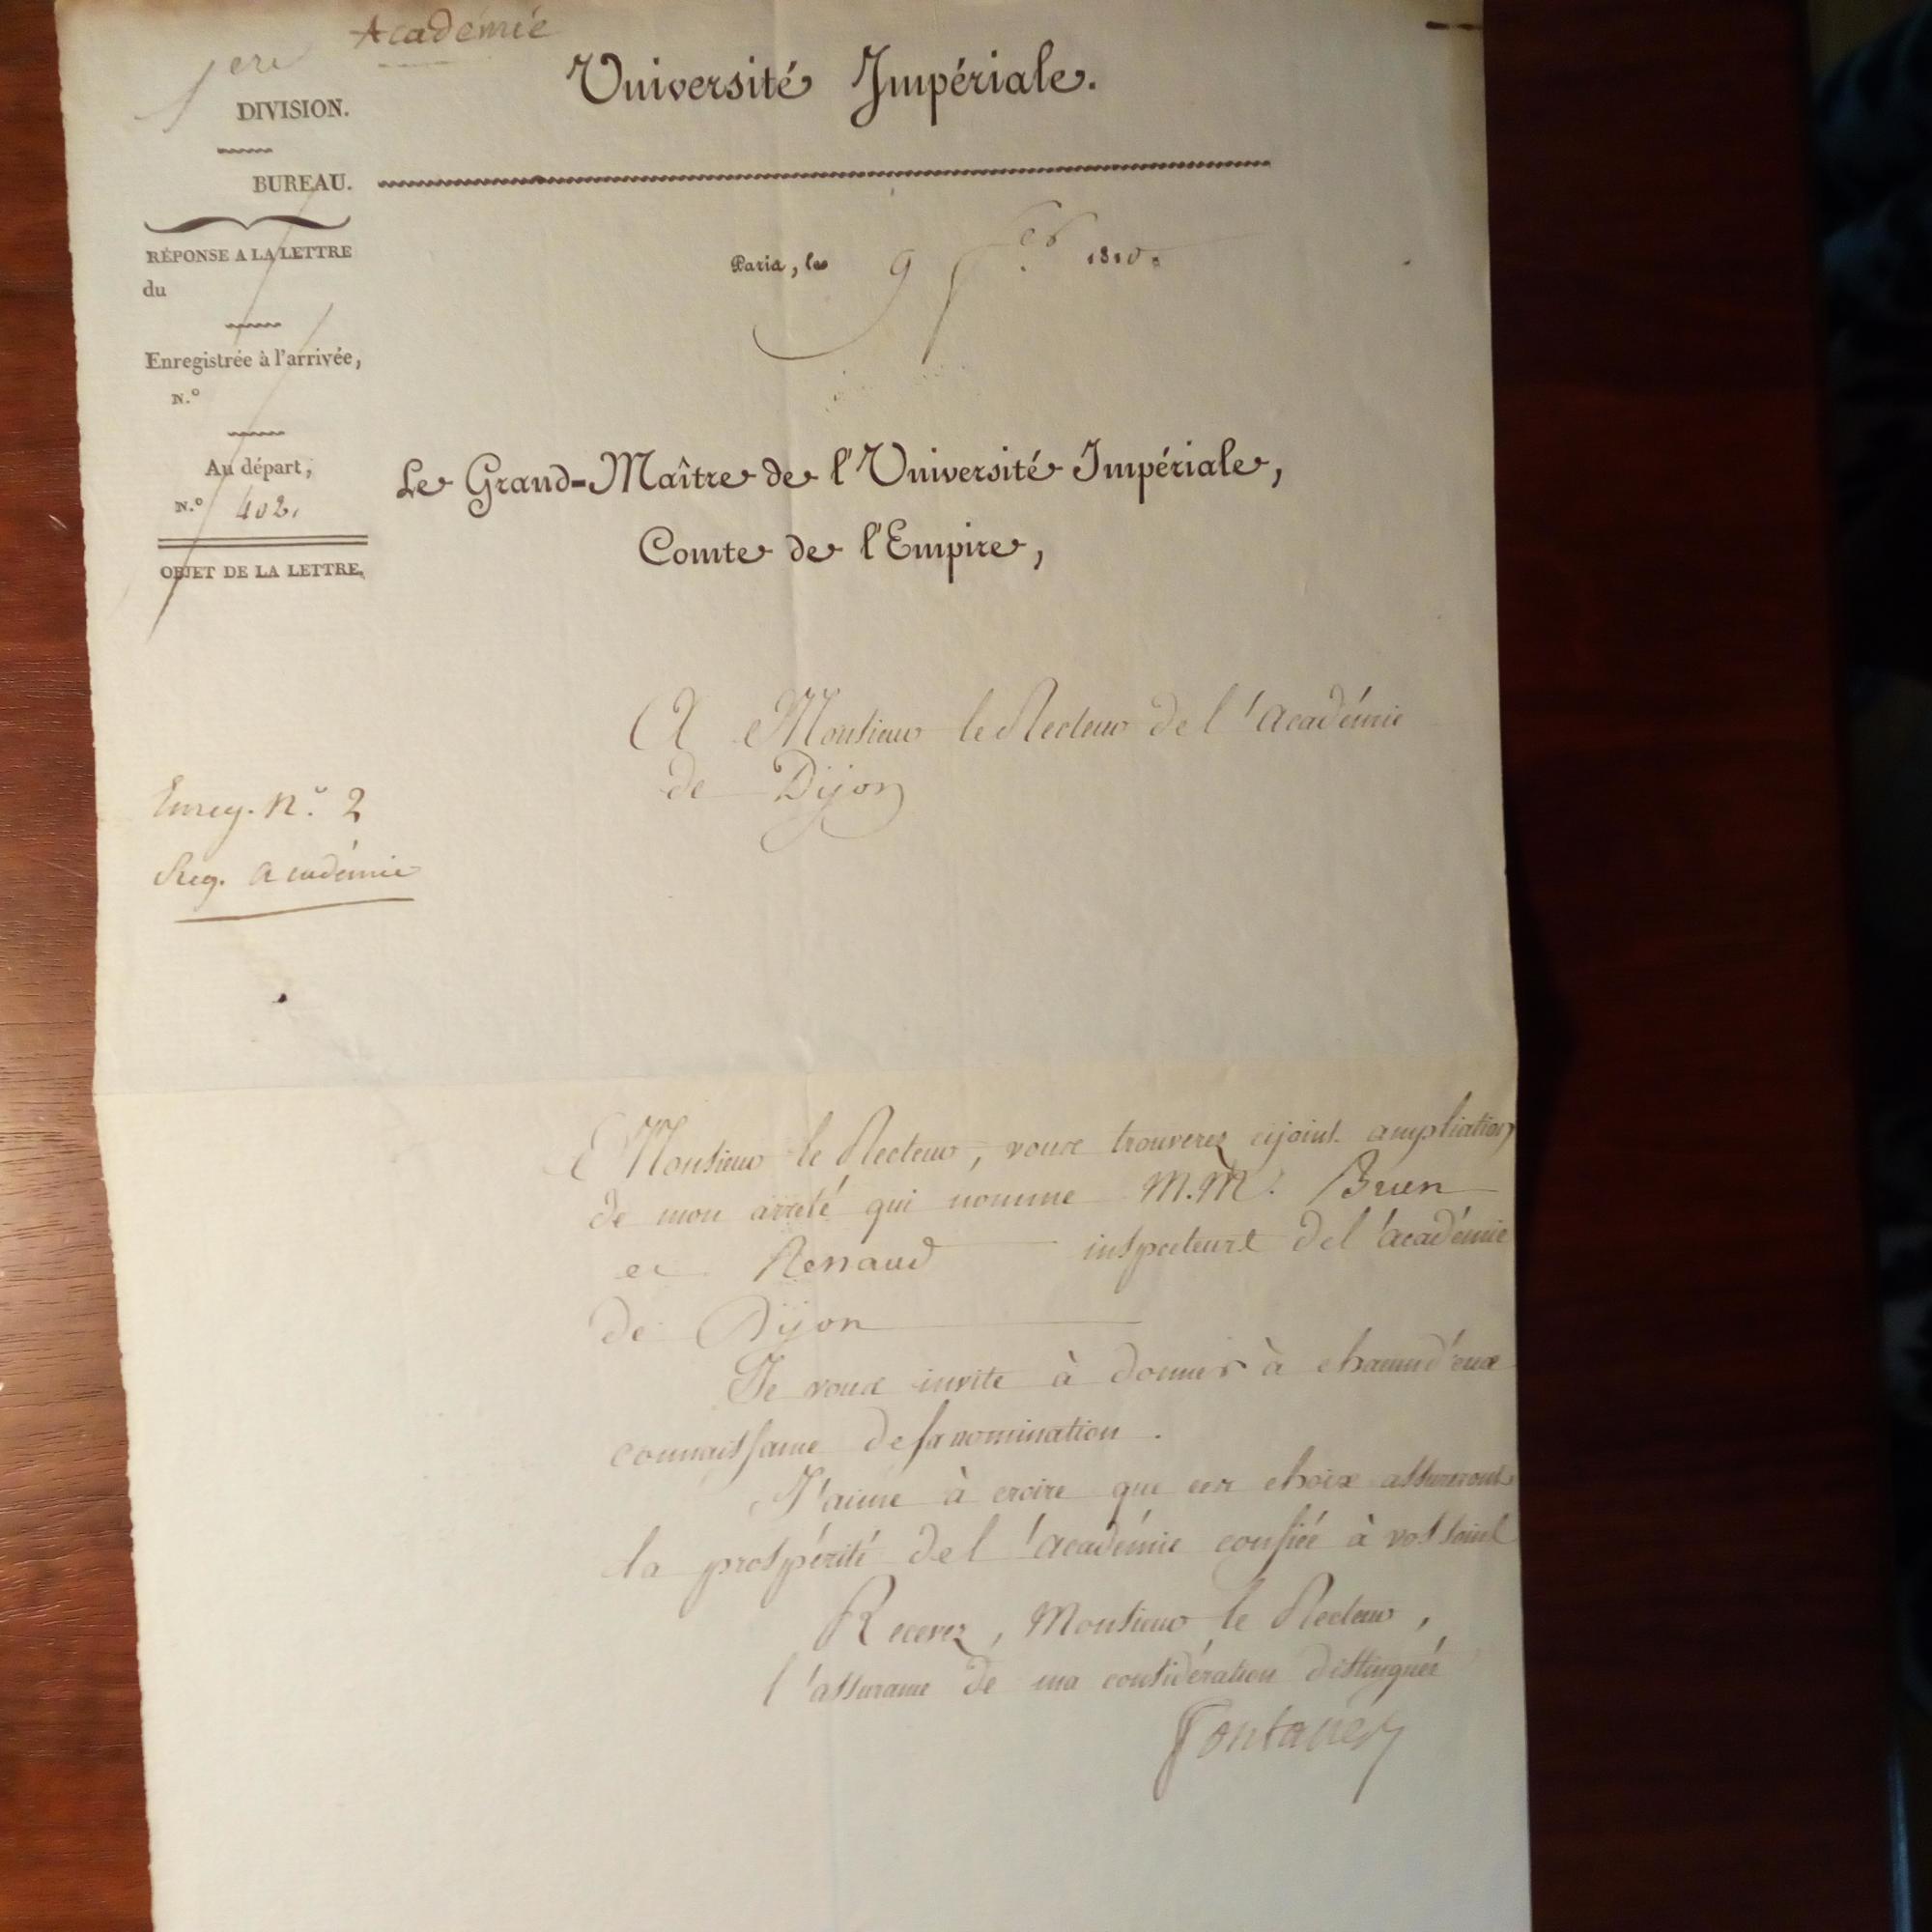 Académie
1ere
DIVISION.
BUREAU.
RÉPONSE A LA LETTRE
du
Enregistrée à l'arrivée,
N.º
Au départ,
N.º 402.
OBJET DE LA LETTRE,
Enreg. Nº. 2
Reg. académie
Université Impériale.
Paris, le 9 1810.
Le Grand-Maître de l'Université Impériale,
Comte de l'Empire,
A Monsieur le Recteur de l'académie
de Dijon
Monsieur le Recteur, vous trouverez cijoint ampliation
de mon arrêté qui nomme M.M.
et Renaud inspecteurs de l'académie
de Dijon
Je vous invite à donner à chacun d'eux
connaissance de sa nomination.
J'aime à croire que ces choix assureront
la prospérité de l'académie confiée à vos soins
Recevez, Monsieur le Recteur,
l'assurance de ma considération distinguée
Fontanes